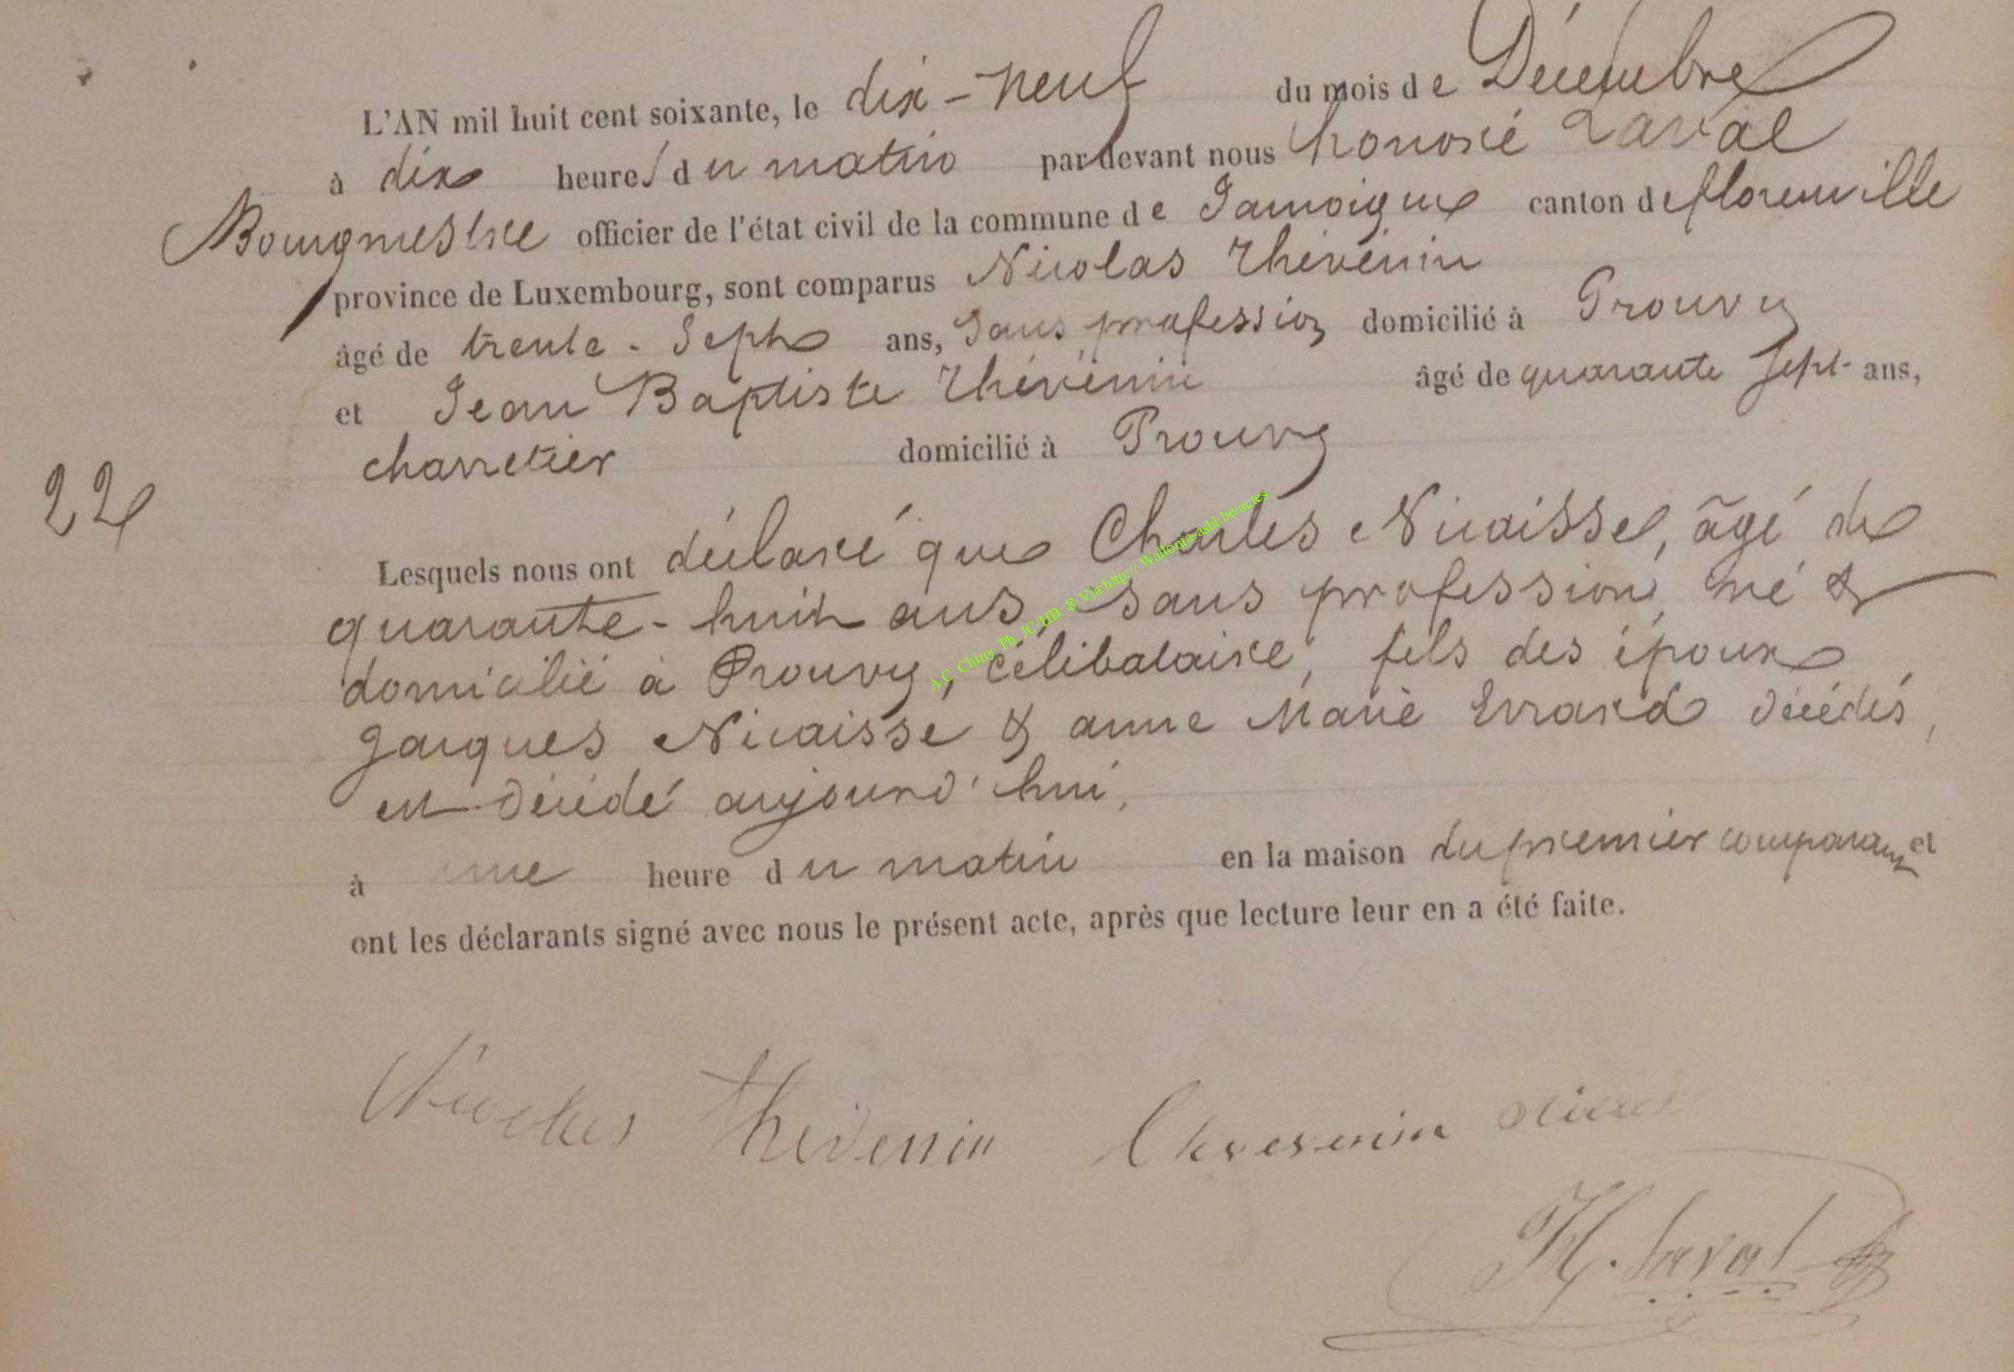 L'AN mil huit cent soixante, le dix-neuf du mois de Décembre
à dix heures du matin par devant nous honoré Laval
Bourgmestre officier de l'état civil de la commune de Jamoigne canton de florenville
province de Luxembourg, sont comparus Nicolas Thévénin
âgé de trente-sept ans, sans profession domicilié à Prouvy
et Jean Baptiste Thévénin âgé de quarante sept ans,
charretier domicilié à Prouvy
22
Lesquels nous ont déclaré que Charles Nicaisse, âgé de
quarante-huit ans, sans profession, né &
domicilié à Prouvy, célibataire, fils des époux
Jacques Nicaisse & anne Marie Errard décédés,
est décédé aujourd'hui,
à une heure du matin en la maison du premier comparant et
ont les déclarants signé avec nous le présent acte, après que lecture leur en a été faite.
A.C. Chiny Ph JC HB @ Via http://Wallonia-asbl.be/actes
Nicolas Thevenin Thevenin
H. Laval